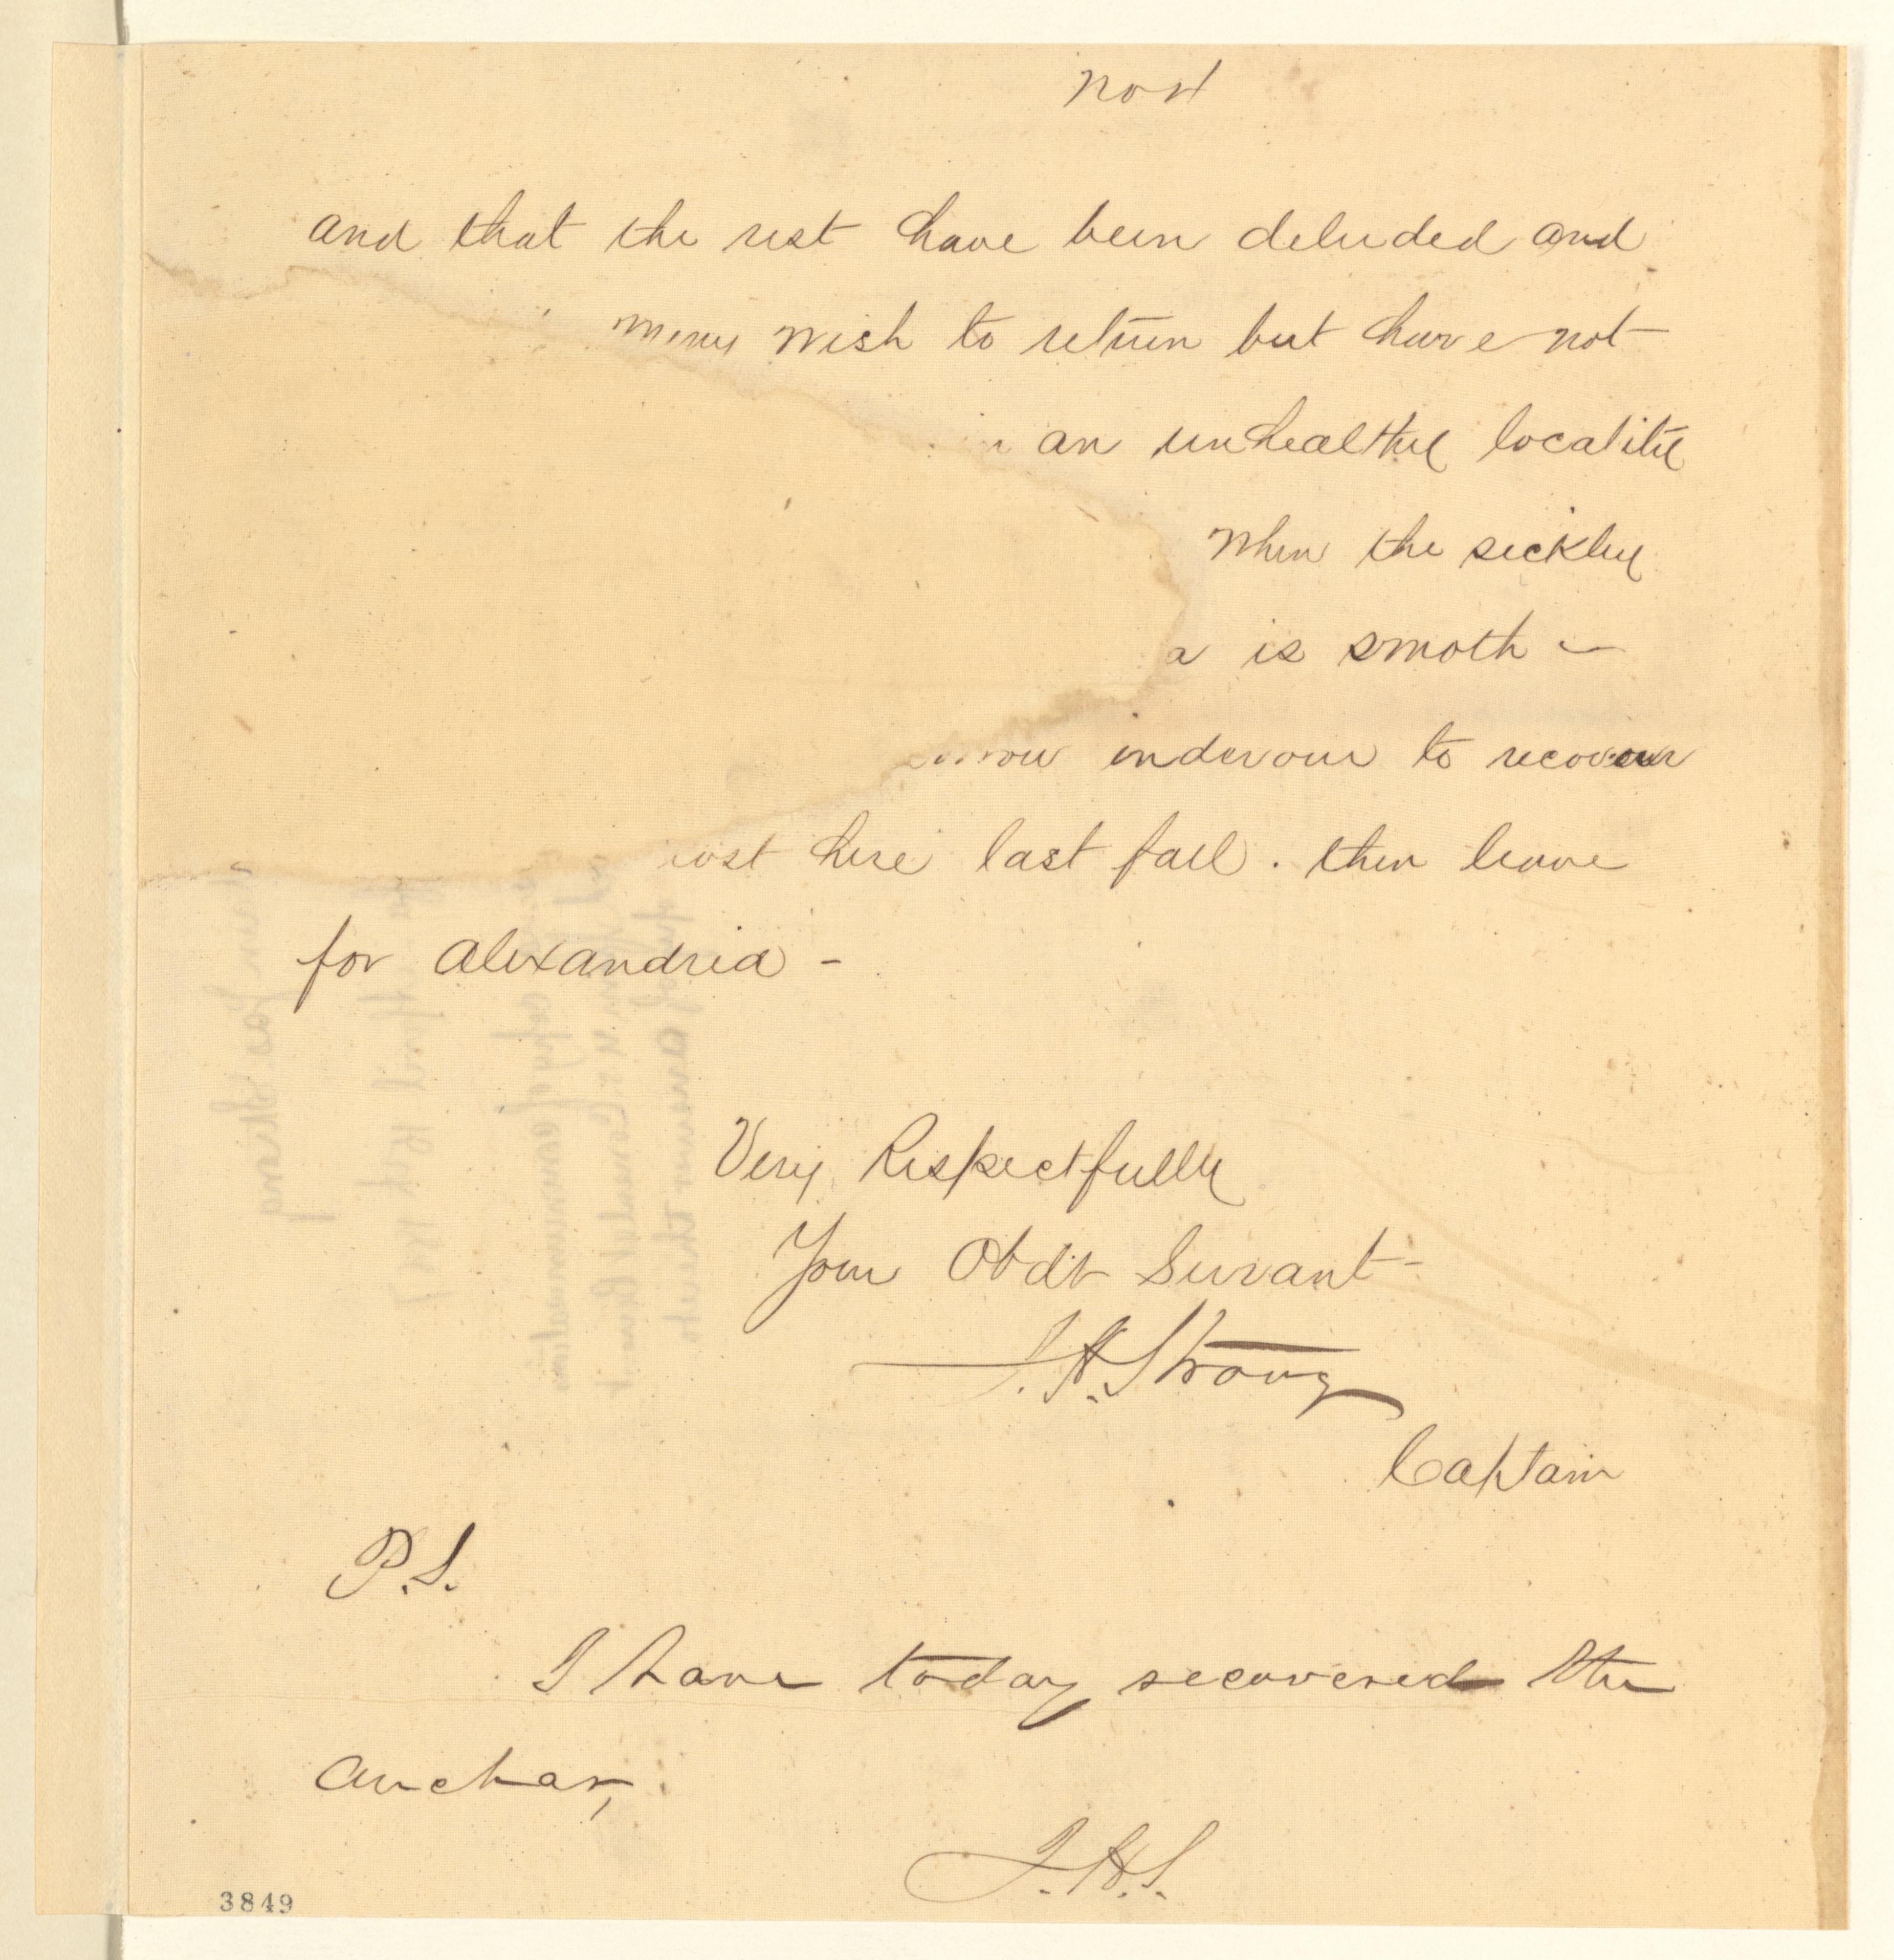 and that the rest have been deluded and
many wish to return but have not
in an unhealthy locality
when the sickly
a is smoth –
indevour to recover
here last fall. then leave
for Alexandria –
Very Respectfully
Your Obdt Survant
J.H. Strong
Captain
P.S.
I have today recovered the
anchor,
J.H.S.
3849